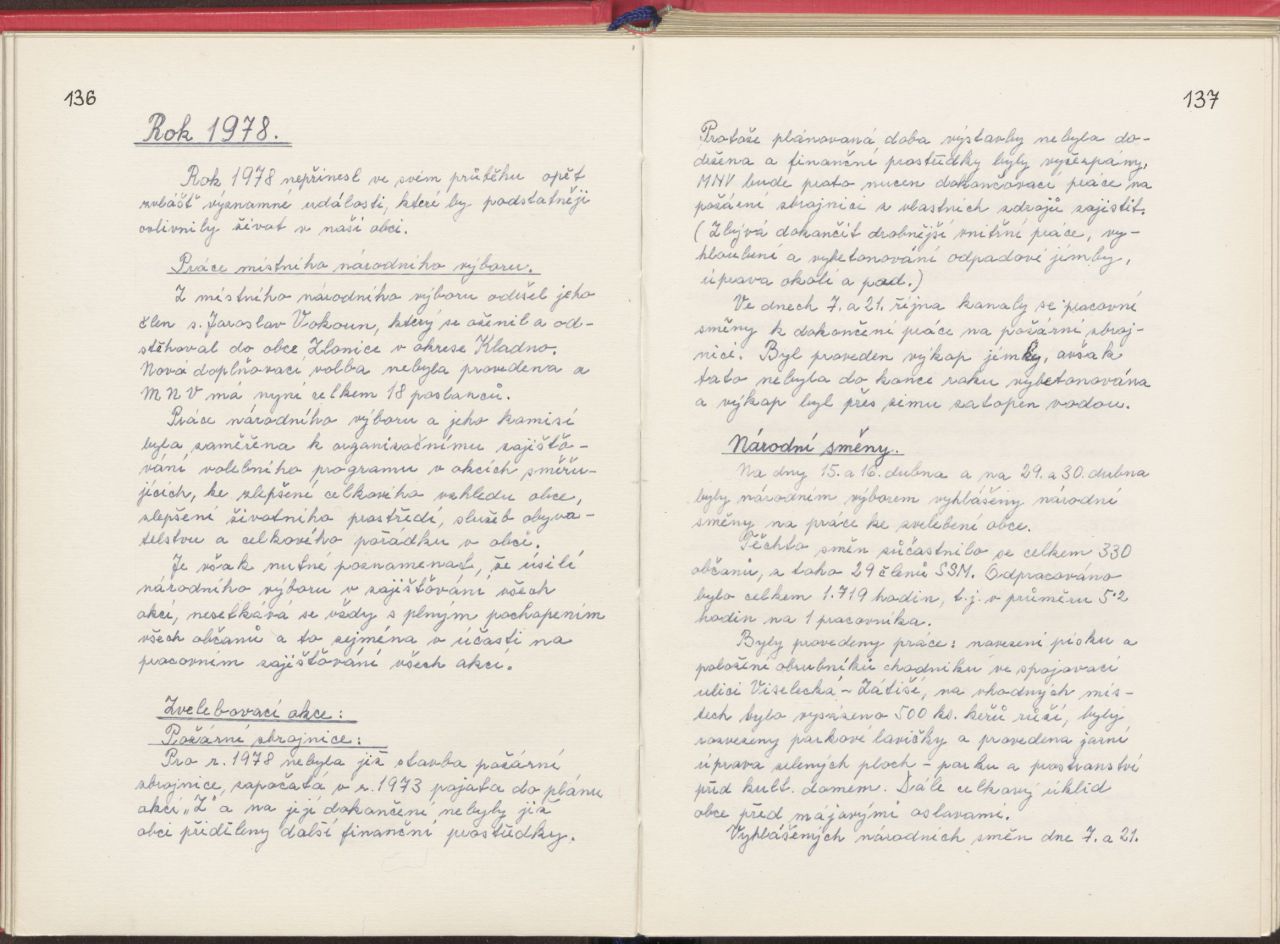 136
Rok 1978.
Rok 1978 nepřinesl ve svém průběhu opět
zvláště významné události, které by podstatněji
ovlivnily život v naší obci.
Práce místního národního výboru.
Z místního národního výboru odešel jeho
člen s. Jaroslav Vokoun, který se oženil a od-
stěhoval do obce Zlonice v okrese Kladno.
Nová doplňovací volba nebyla provedena a
MNV má nyní celkem 18 poslanců.
Práce národního výboru a jeho komisí
byla zaměřena k organizačnímu zajiště-
vání volebního programu v akcích směřu-
jících, ke zlepšení celkového vzhledu obce,
zlepšení životního prostředí, služeb obyva-
telstvu a celkového pořádku v obci.
Je však nutné poznamenat, že úsilí
národního výboru v zajišťování všech
akcí, nesetkává se vždy s plným pochopením
všech občanů a to zejména v účasti na
pracovním zajišťování všech akcí.
Zvelebovací akce:
Požární zbrojnice:
Pro r. 1978 nebyla již stavba požární
zbrojnice, započatá v r. 1973 pojata do plánu
akcí „Z" a na její dokončení nebyly již
obci přiděleny další finanční prostředky.
137
Protože plánovaná doba výstavby nebyla do-
držena a finanční prostředky byly vyčerpány,
MNV bude proto nucen dokončovací práce na
požární zbrojnici z vlastních zdrojů zajistit.
(Zbývá dokončit drobnější vnitřní práce, vy-
hloubení a vybetonování odpadové jímky,
úprava okolí a pod.)
Ve dnech 7. a 21. října konaly se pracovní
směny k dokončení práce na požární zbroj-
nici. Byl proveden výkop jímky, avšak
tato nebyla do konce roku vybetonována
a výkop byl přes zimu zatopen vodou.
Národní směny.
Na dny 15. a 16. dubna a na 29. a 30. dubna
byly národním výborem vyhlášeny národní
směny na práce ke zvelebení obce.
Těchto směn zúčastnilo se celkem 330
občanů, z toho 29 členů SSM. Odpracováno
bylo celkem 1.719 hodin, t.j. v průměru 5·2
hodin na 1 pracovníka.
Byly provedeny práce: navezení písku a
položení obrubníků chodníku ve spojovací
ulici Viselecká - Zátiší, na vhodných mís-
tech bylo vysázeno 500 ks. keřů růží, byly
rozvezeny parkové lavičky a provedena jarní
úprava zelených ploch - parku a prostranství
před kult. domem. Dále celkový úklid
obce před májovými oslavami.
Vyhlášených národních směn dne 7. a 21.